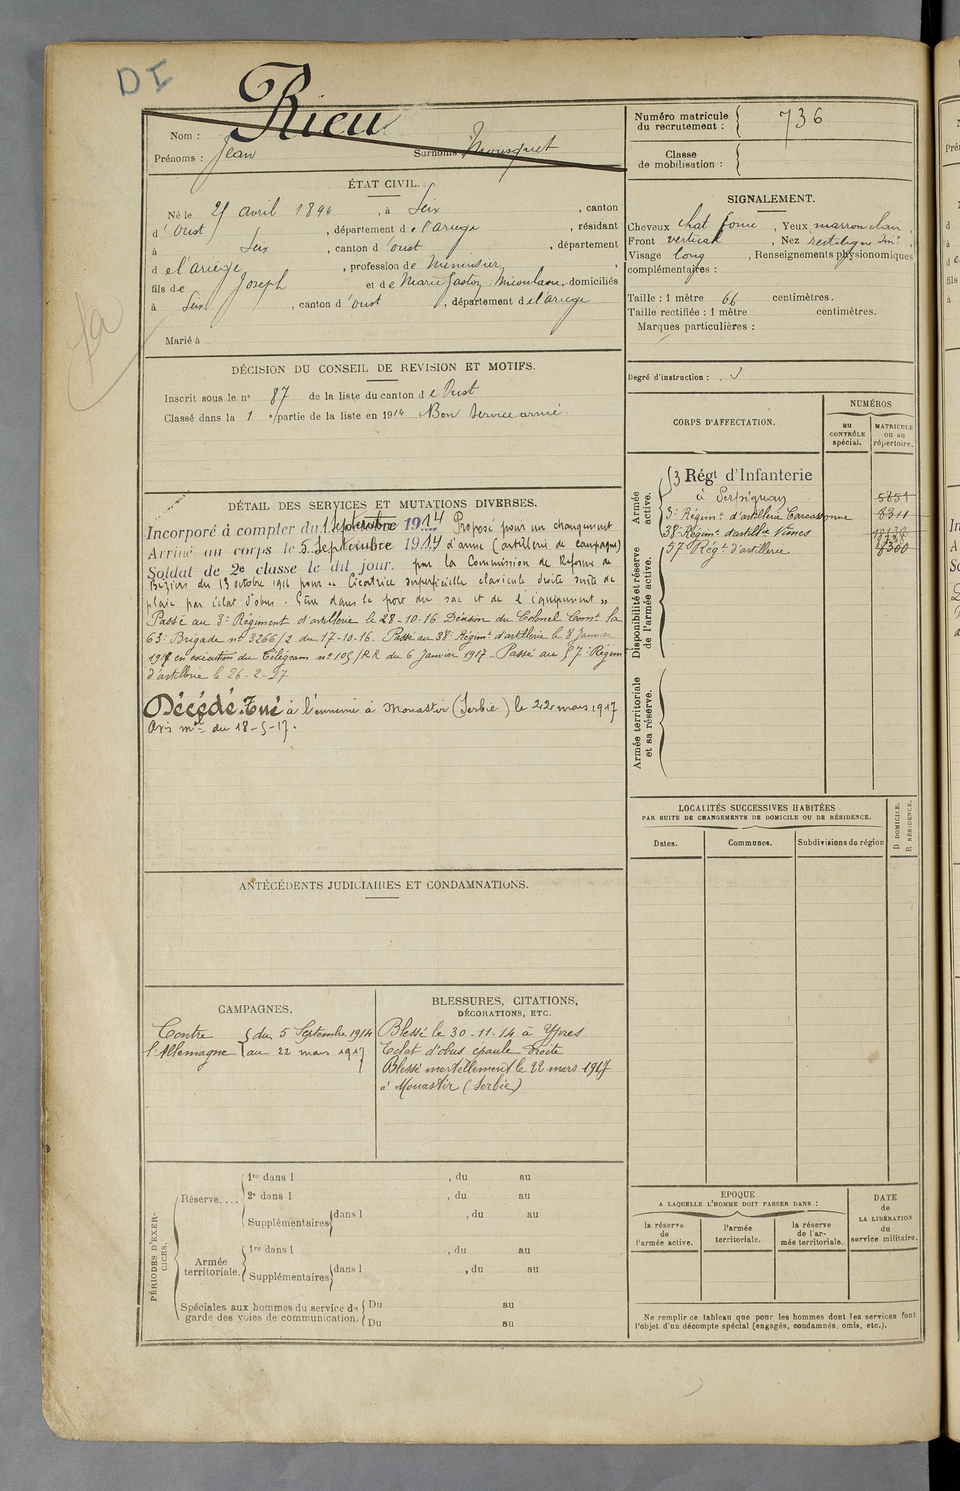 DI
Rieu
Nom :
Prénoms : Jean Surnoms : Mousquet
Numéro matricule du recrutement : 736
Classe de mobilisation :
ÉTAT CIVIL.
Né le 21 avril 1894, à Seix, canton
d'Oust, département de l'ariège, résidant
à Seix, canton d'oust, département
de l'ariège, profession de Menuisier,
fils de Joseph et de Marie domiciliés
à Seix, canton d'oust, département de l'ariège
Marié à
SIGNALEMENT.
Cheveux chat foncé, Yeux marron clair,
Front vertical, Nez rectiligne
Visage long, Renseignements physionomiques
complémentaires :
Taille : 1 mètre 66 centimètres.
Taille rectifiée : 1 mètre centimètres.
Marques particulières :
Degré d'instruction : 3
DÉCISION DU CONSEIL DE REVISION ET MOTIFS.
Inscrit sous le n° 87 de la liste du canton de Oust
Classé dans la 1 e partie de la liste en 1914 Bon Service armé
DÉTAIL DES SERVICES ET MUTATIONS DIVERSES.
Incorporé à compter du 1 Septembre 1914 Proposé pour un changement
Arrivé au corps le 5 Septembre 1914 d'arme (artillerie de campagne)
Soldat de 2e classe le dit jour. par la Commission de Réforme de
Béziers du 13 octobre 1916 pour " Cicatrice superficielle clavicule droite suite de
plaie par éclat d'obus. Gêne dans le port du sac et de l'équipement "
Passé au 3e Régiment d'artillerie le 28-10-16 Décision du Colonel Comt la
63e Brigade n° 3266/2 du 17-10-16. Passé au 38e Régimt d'artillerie le 8 Janvier
1917 en exécution du Télégram n° 105/RR du 6 Janvier 1917 - Passé au 57e Régim
d'artillerie le 26-2-17
Décédé. Tué à l'ennemi à Monastir (Serbie) le 22 mars 1917
Avis mel du 18-5-17.
CORPS D'AFFECTATION.
NUMÉROS
au CONTRÔLE spécial.
MATRICULE ou au répertoire.
Armée active.
53 Régt d'Infanterie
à Perpignan 5851
3e Régimt d'artillerie Carcassonne 8311
38e Régimt d'artillie Nimes
57e Régt d'artillerie
Disponibilité et réserve de l'armée active.
Armée territoriale et sa réserve.
LOCALITÉS SUCCESSIVES HABITÉES
PAR SUITE DE CHANGEMENTS DE DOMICILE OU DE RÉSIDENCE.
Dates. Communes. Subdivisions de région
D DOMICILE.
R RÉSIDENCE.
ANTÉCÉDENTS JUDICIAIRES ET CONDAMNATIONS.
CAMPAGNES.
Contre l'Allemagne
du 5 Septembre 1914
au 22 mars 1917
BLESSURES, CITATIONS,
DÉCORATIONS, ETC.
Blessé le 30-11-14 à Ypres
Eclat d'obus épaule droite
Blessé mortellement le 22 mars 1917
à Monastir (Serbie)
PÉRIODES D'EXERCICES.
Réserve....
1re dans l , du au
2e dans l , du au
Supplémentaires dans l , du au
Armée territoriale.
1re dans l , du au
Supplémentaires dans l , du au
Spéciales aux hommes du service de garde des voies de communication.
Du au
Du au
EPOQUE
A LAQUELLE L'HOMME DOIT PASSER DANS :
la réserve de l'armée active.
l'armée territoriale.
la réserve de l'armée territoriale.
DATE de LA LIBÉRATION du service militaire.
Ne remplir ce tableau que pour les hommes dont les services font
l'objet d'un décompte spécial (engagés, condamnés, omis, etc.).